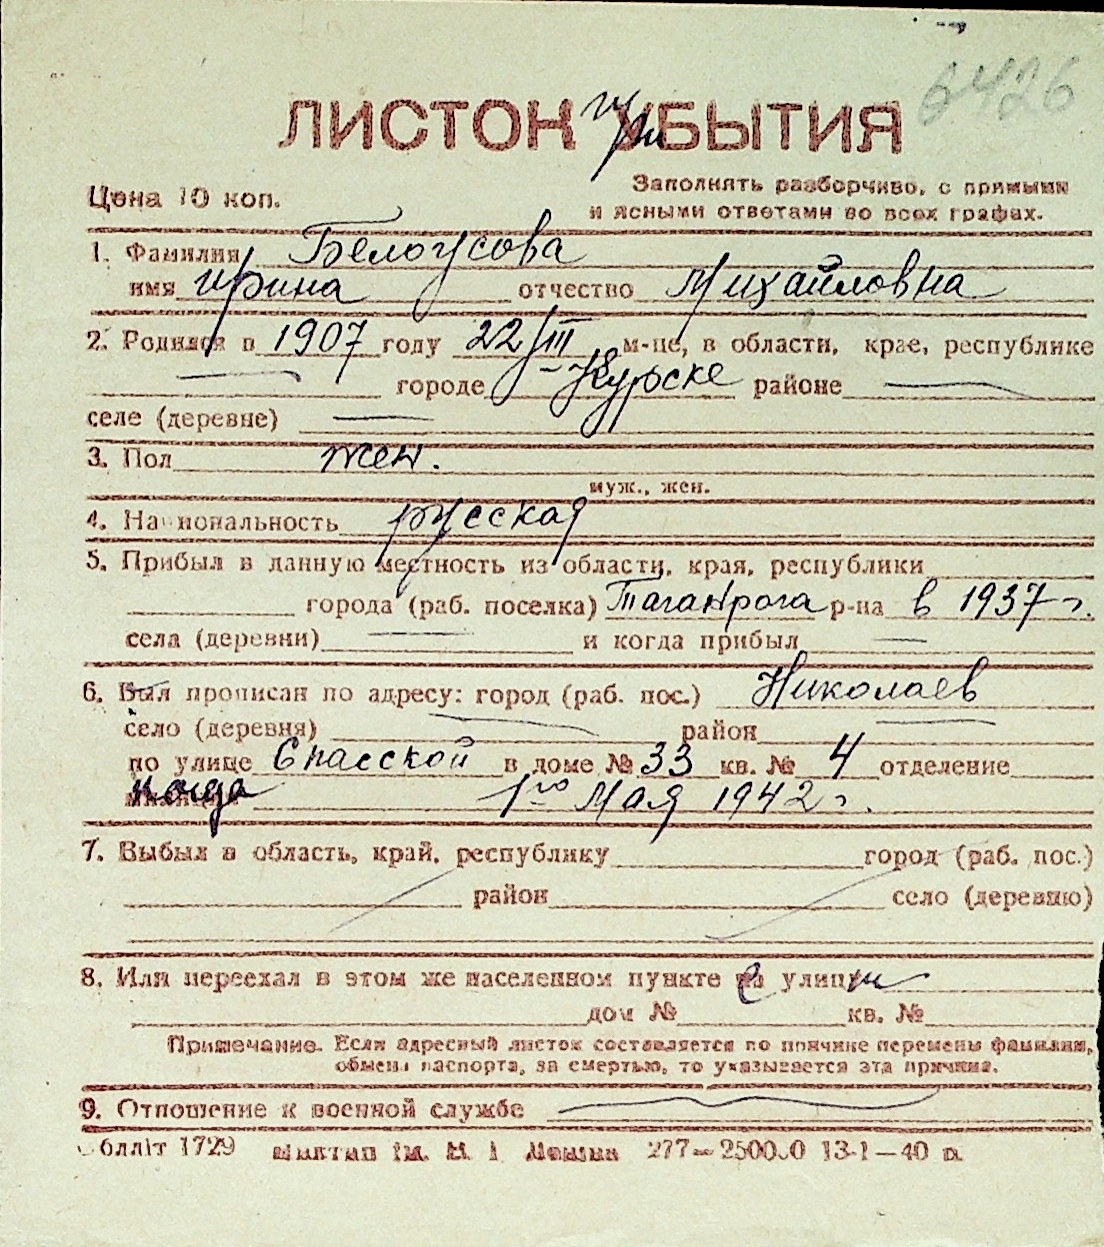 6426
ЛИСТОК при УБЫТИЯ
Цена 10 коп.
Заполнять разборчиво, с прямыми
и ясными ответами во всех графах.
1. Фамилия Белоусова
имя Ирина отчество Михайловна
2. Родился в 1907 году 22/III м-це, в области, крае, республике
— городе — Курске районе —
селе (деревне) —
3. Пол жен.
муж., жен.
4. Национальность русская
5. Прибыл в данную местность из области, края, республики
города (раб. поселка) Таганрога р-на в 1937 г.
села (деревни) — и когда прибыл —
6. Был прописан по адресу: город (раб. пос.) Николаев
село (деревня) — район —
по улице Спасской в доме № 33 кв. № 4 отделение
когда 1го Мая 1942 г.
7. Выбыл в область, край, республику город (раб. пос.)
район село (деревню)
8. Или переехал в этом же населенном пункте с улицы
дом № кв. №
Примечание. Если адресный листок составляется по причине перемены фамилии,
обмена паспорта, за смертью, то указывается эта причина.
9. Отношение к военной службе —
Обллiт 1729 iм. 277—250000 13-1—40 р.